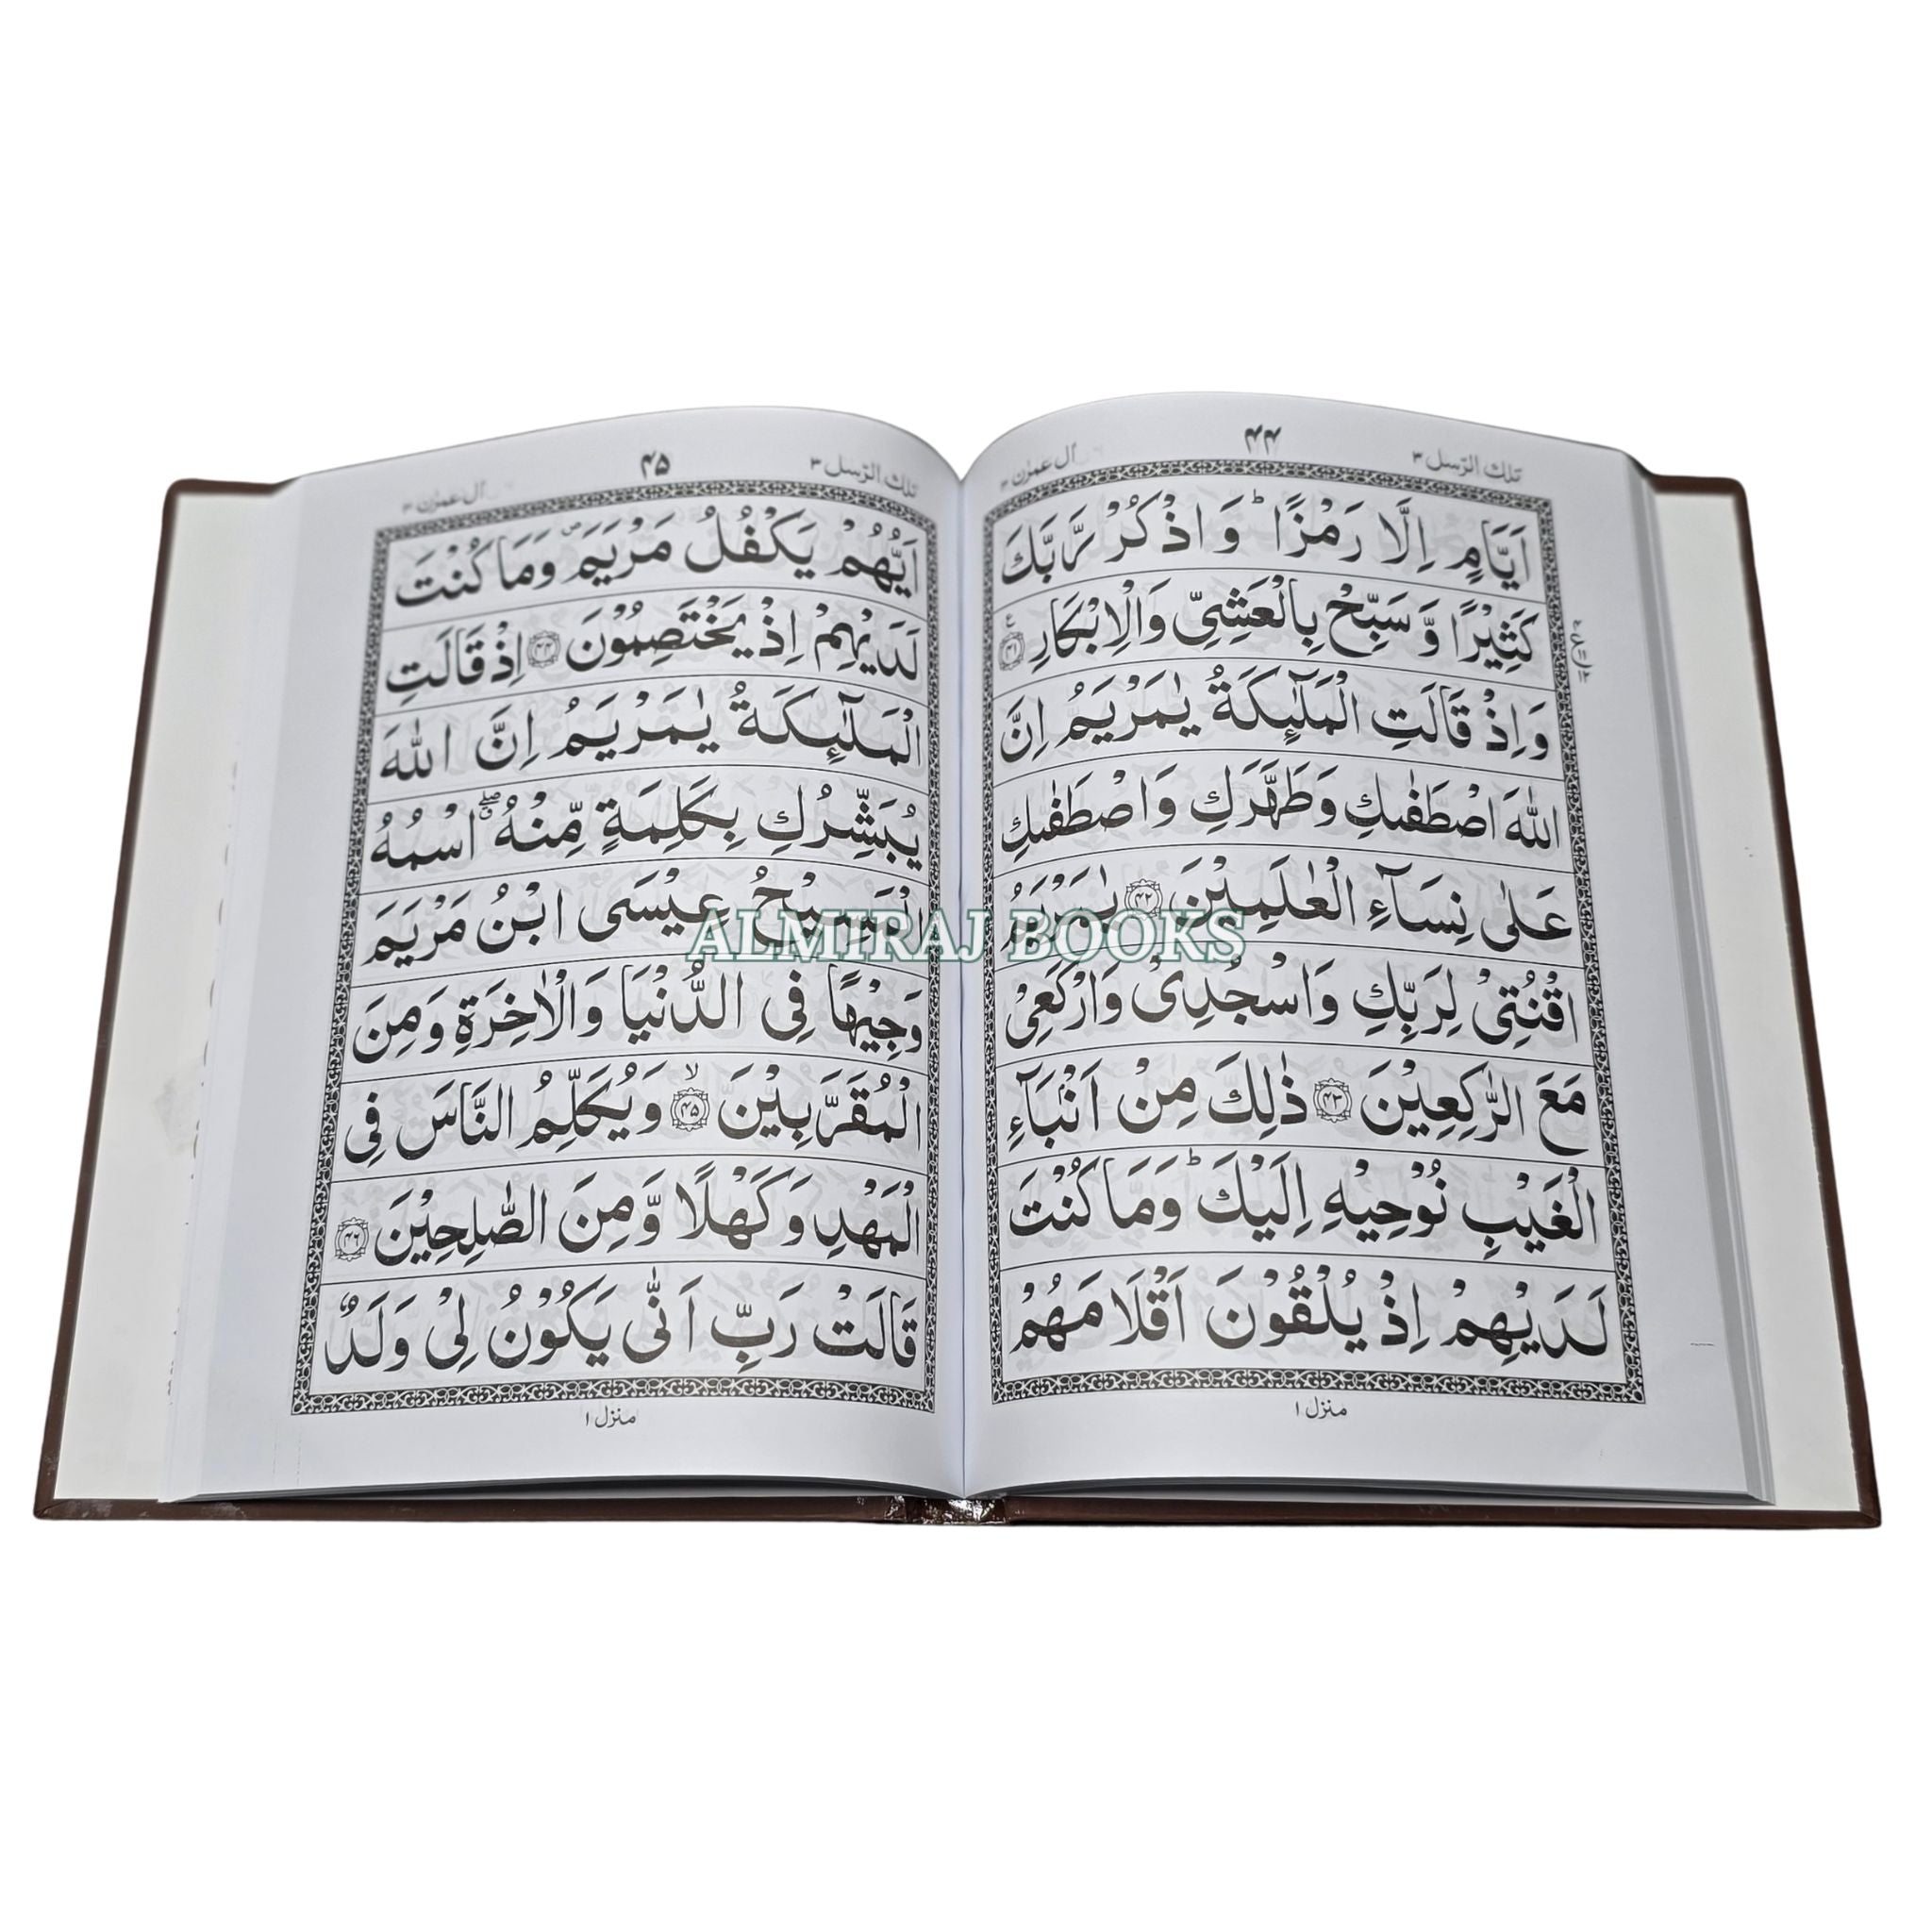 تلك الرسل ٣
٤٤
آل عمرٰن ٣
اَيَّامٍ اِلَّا رَمْزًا ؕ وَاذْكُرْ رَّبَّكَ
كَثِيْرًا وَّ سَبِّحْ بِالْعَشِىِّ وَالْاِبْكَارِ ﴿۴۱﴾ ع
وَاِذْ قَالَتِ الْمَلٰٓئِكَةُ يٰمَرْيَمُ اِنَّ
اللّٰهَ اصْطَفٰىكِ وَطَهَّرَكِ وَاصْطَفٰىكِ
عَلٰى نِسَآءِ الْعٰلَمِيْنَ ﴿۴۲﴾ يٰمَرْيَمُ
اقْنُتِىْ لِرَبِّكِ وَاسْجُدِىْ وَارْكَعِىْ
مَعَ الرّٰكِعِيْنَ ﴿۴۳﴾ ذٰلِكَ مِنْ اَنْۢبَآءِ
الْغَيْبِ نُوْحِيْهِ اِلَيْكَ ؕ وَمَا كُنْتَ
لَدَيْهِمْ اِذْ يُلْقُوْنَ اَقْلَامَهُمْ
منزل ١
تلك الرسل ٣
٤۵
آل عمرٰن ٣
اَيُّهُمْ يَكْفُلُ مَرْيَمَ ۪ وَمَا كُنْتَ
لَدَيْهِمْ اِذْ يَخْتَصِمُوْنَ ﴿۴۴﴾ اِذْ قَالَتِ
الْمَلٰٓئِكَةُ يٰمَرْيَمُ اِنَّ اللّٰهَ
يُبَشِّرُكِ بِكَلِمَةٍ مِّنْهُ ۖ اسْمُهُ
الْمَسِيْحُ عِيْسَى ابْنُ مَرْيَمَ
وَجِيْهًا فِى الدُّنْيَا وَالْاٰخِرَةِ وَمِنَ
الْمُقَرَّبِيْنَ ۙ﴿۴۵﴾ وَيُكَلِّمُ النَّاسَ فِى
الْمَهْدِ وَكَهْلًا وَّمِنَ الصّٰلِحِيْنَ ﴿۴۶﴾
قَالَتْ رَبِّ اَنّٰى يَكُوْنُ لِىْ وَلَدٌ
منزل ١
ALMIRAJ BOOKS